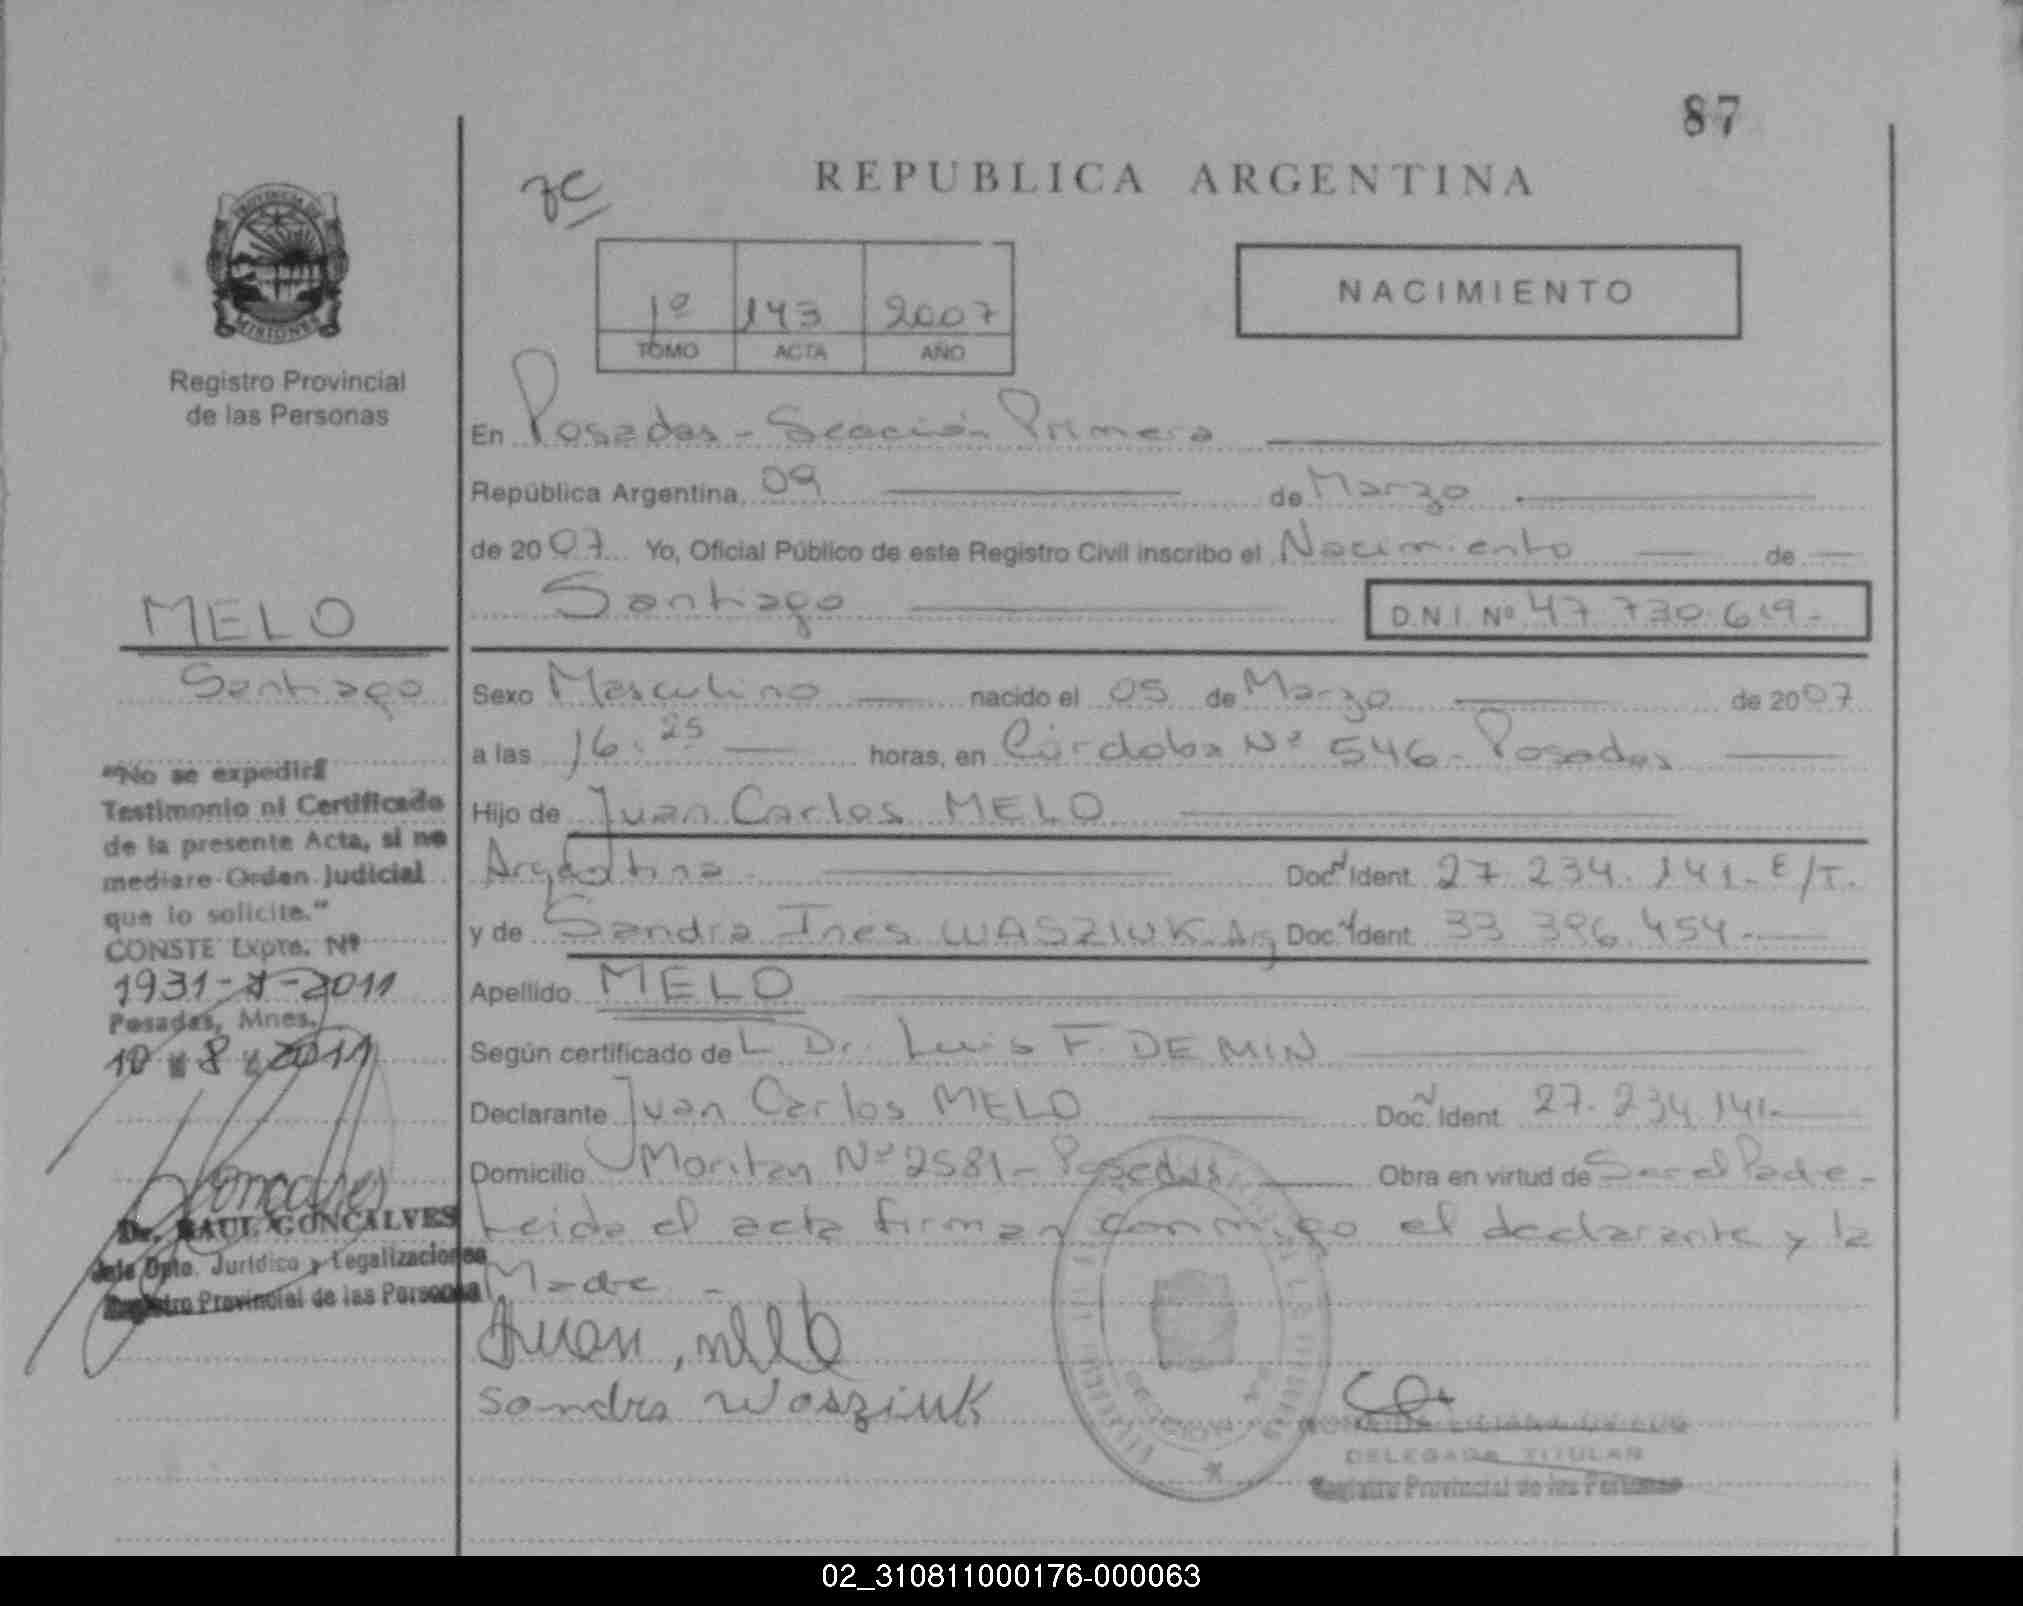 87
REPUBLICA ARGENTINA
PROVINCIA DE
MISIONES
Registro Provincial
de las Personas
1º 143 2007
TOMO ACTA AÑO
NACIMIENTO
En Posadas - Sección Primera
República Argentina, 09 de Marzo
de 2007 Yo, Oficial Público de este Registro Civil inscribo el Nacimiento de
Santiago D.N.I. Nº 47.730.619-
MELO
Santiago
Sexo Masculino nacido el 05 de Marzo de 2007
a las 16:25 horas, en Córdoba Nº 546 - Posadas
Hijo de Juan Carlos MELO
Argentina Doc. Ident. 27.234.141- E/T.
y de Sandra Ines WASZIUK - Arg Doc. Ident. 33 396.454-
Apellido MELO
Según certificado de L Dr. Luis F. DEMIN
Declarante Juan Carlos MELO Doc. Ident. 27.234.141-
Domicilio Nº 2581 - Posadas Obra en virtud de Ser el Padre -
Leida el acta firman conmigo el declarante y la
Madre -
Juan, melo
Sandra Wasziuk
"No se expedirá
Testimonio ni Certificado
de la presente Acta, si no
mediare Orden Judicial
que lo solicite."
CONSTE Expte. Nº
1931-1-2011
Posadas, Mnes.
10 8 2011
Goncalves
Dr. RAUL GONCALVES
Jefe Dpto. Jurídico y Legalizaciones
Registro Provincial de las Personas
DELEGADA TITULAR
Registro Provincial de las Personas
02_310811000176-000063